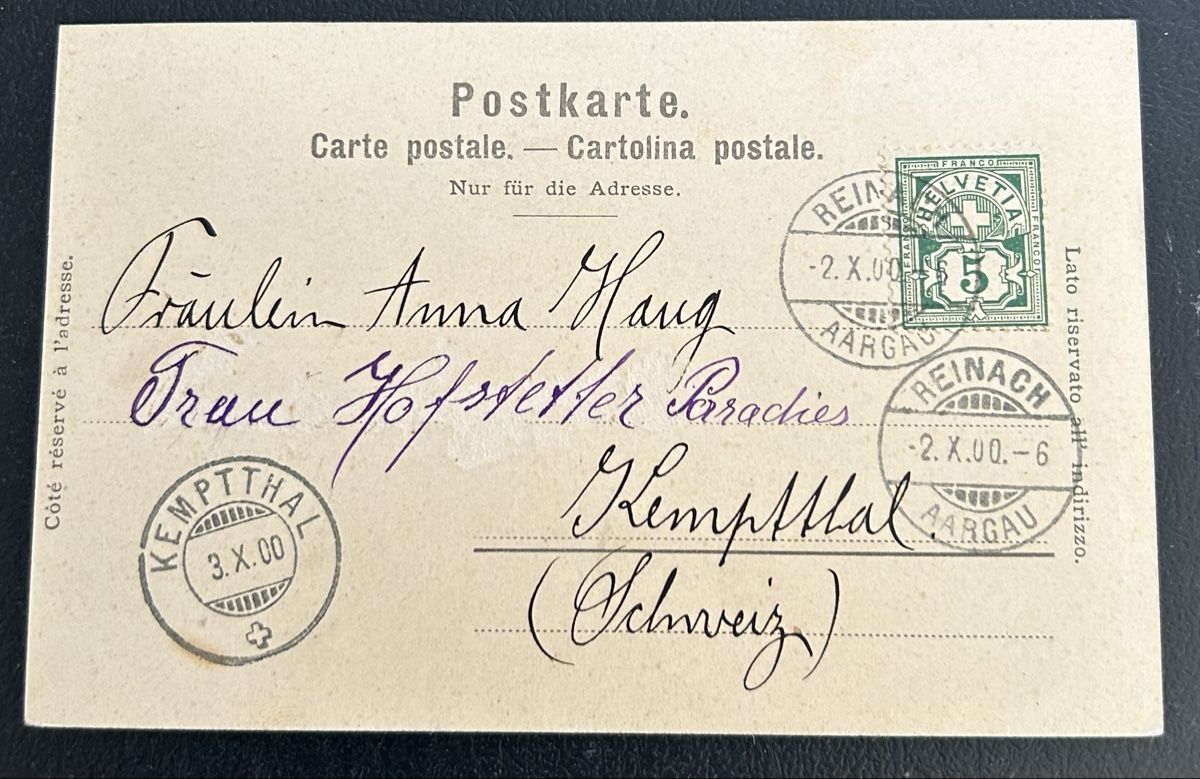 Postkarte.
Carte postale. — Cartolina postale.
Nur für die Adresse.
FRANCO
HELVETIA
FRANCO
FRANCO
5
REINACH
-2.X.00.-6
AARGAU
Fräulein Anna Haug
Frau Hofstetter Paradies
Kemptthal.
(Schweiz)
REINACH
-2.X.00.-6
AARGAU
KEMPTTHAL
3.X.00
Côté réservé à l'adresse.
Lato riservato all' indirizzo.